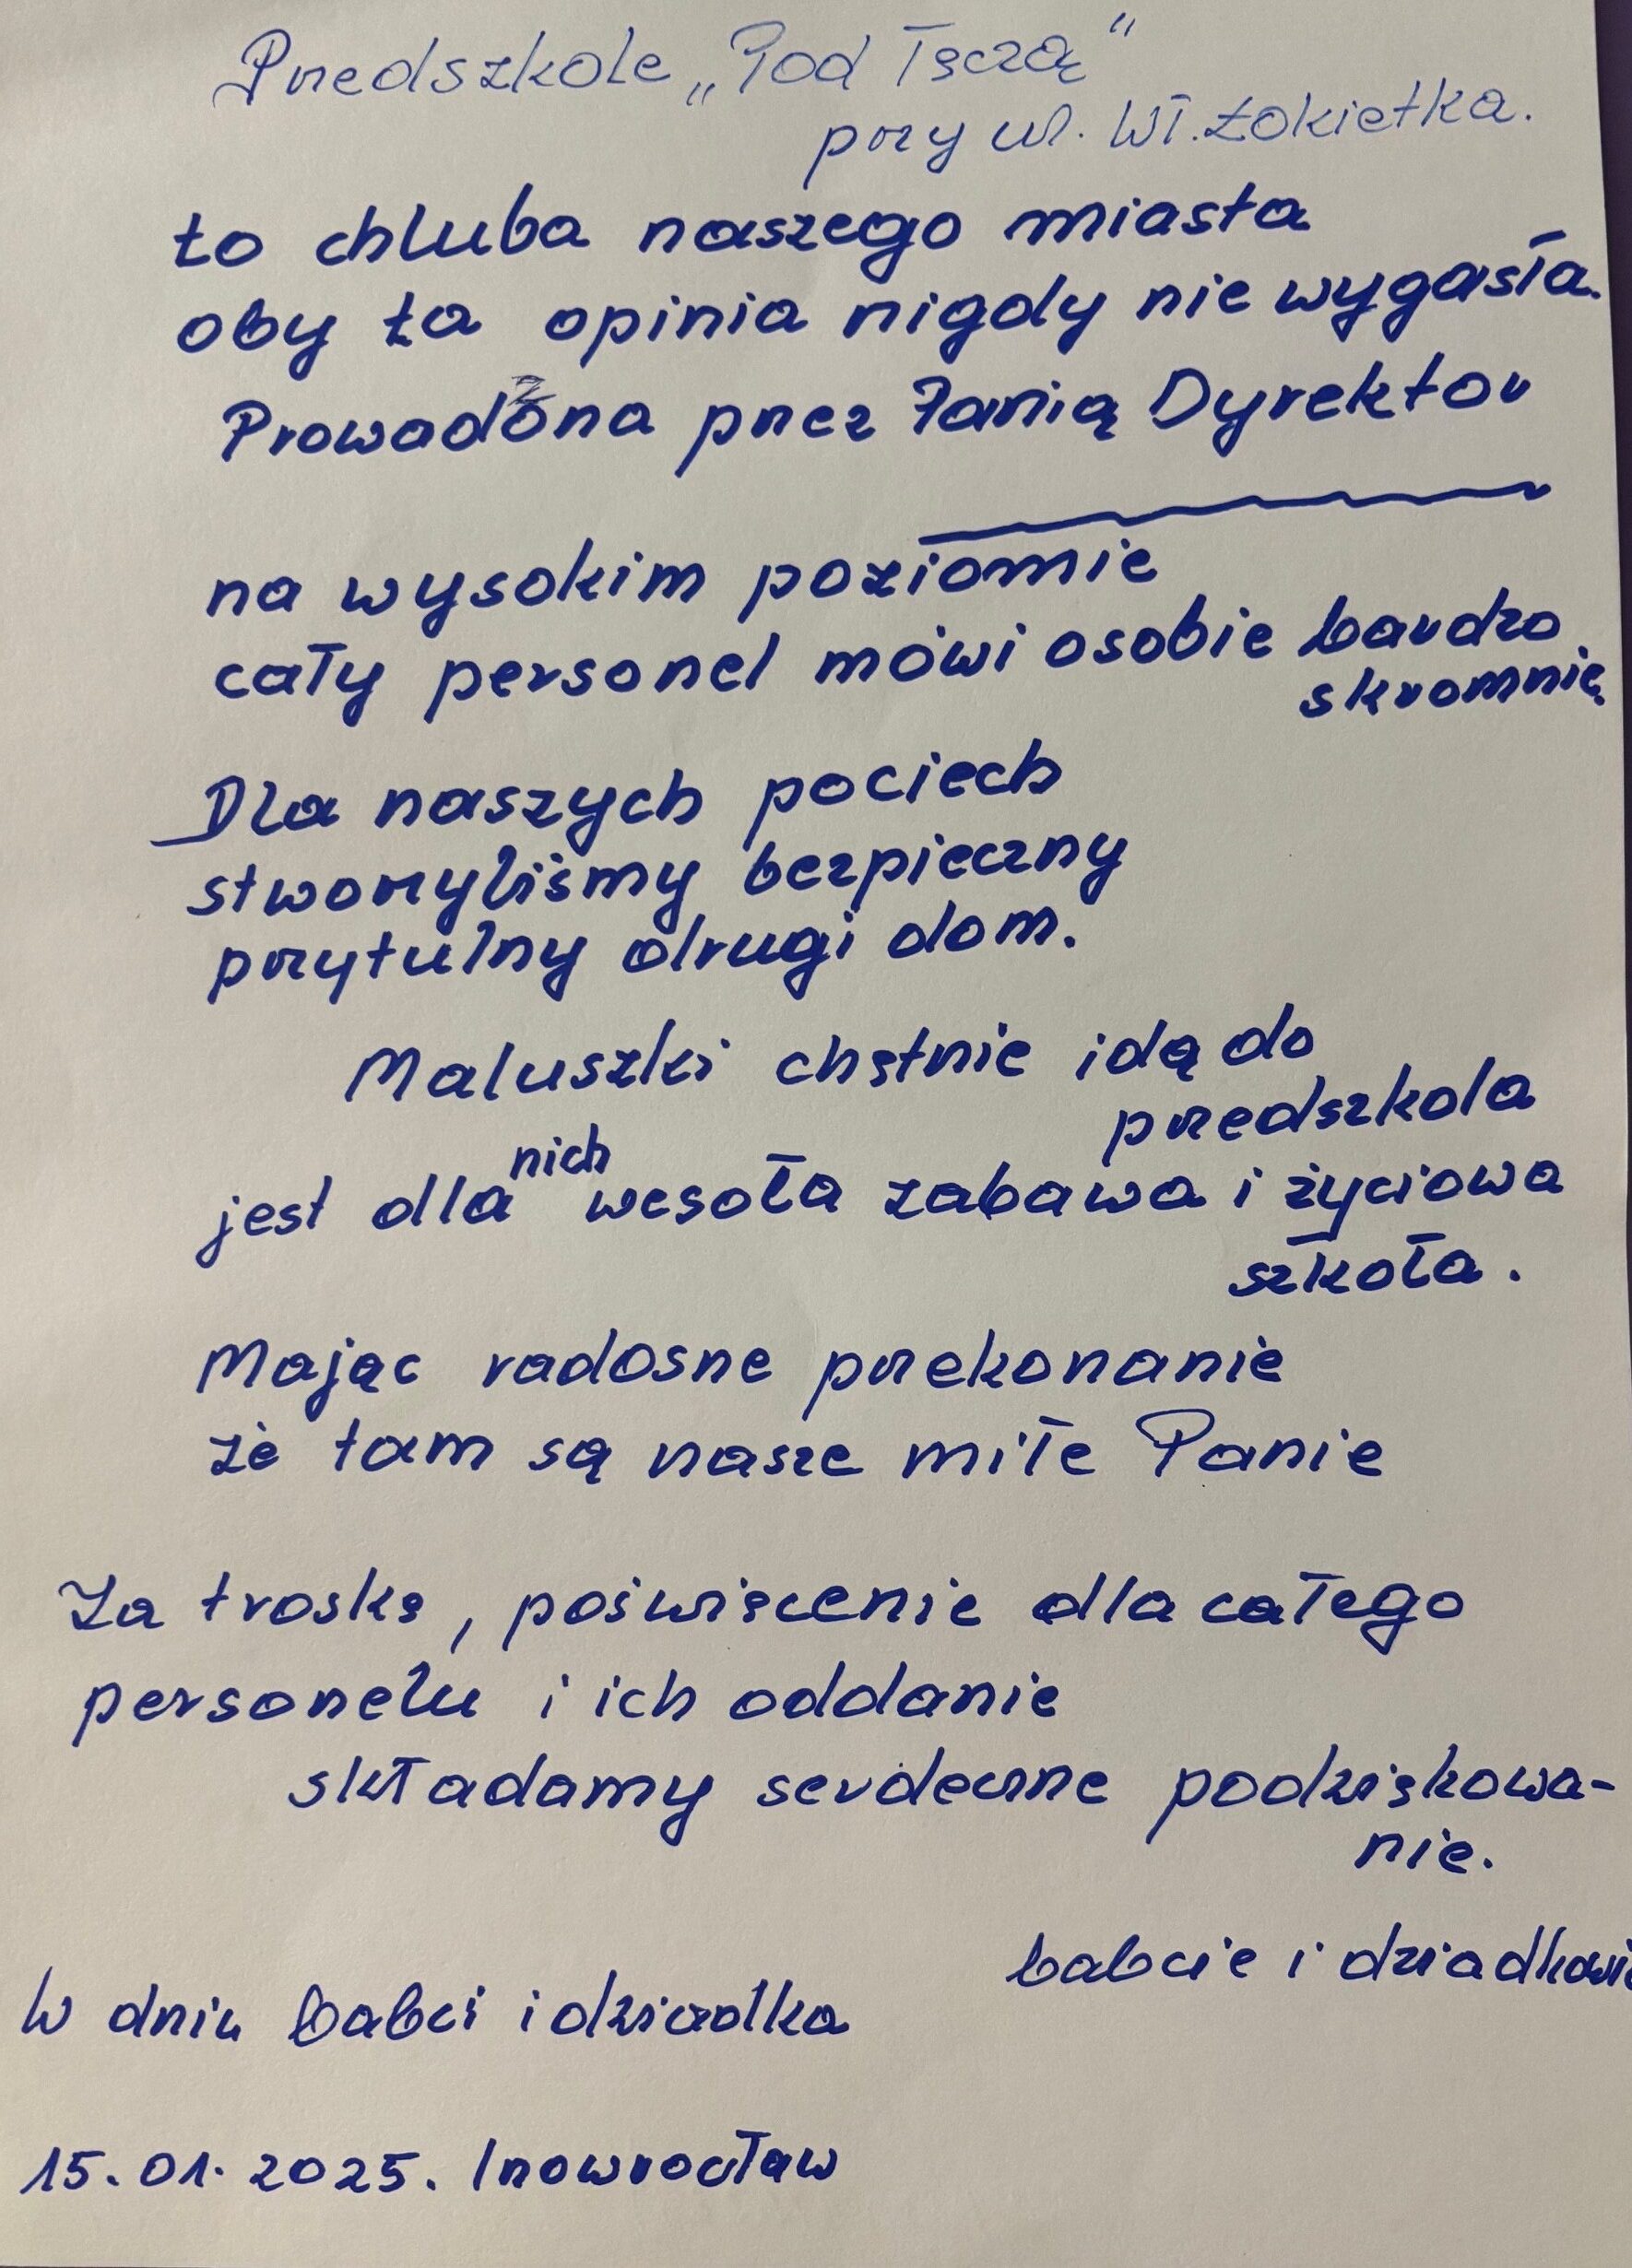 Przedszkole „Pod Tęczą”
przy ul. Wł. Łokietka.
to chluba naszego miasta
oby ta opinia nigdy nie wygasła.
Prowadzona przez Panią Dyrektor
na wysokim poziomie
cały personel mówi o sobie bardzo
skromnie.
Dla naszych pociech
stworzyliśmy bezpieczny
przytulny drugi dom.
Maluszki chętnie idą do
przedszkola
jest dla nich wesoła zabawa i życiowa
szkoła.
Mając radosne przekonanie
że tam są nasze miłe Panie
Za troskę, poświęcenie dla całego
personelu i ich oddanie
składamy serdeczne podziękowa-
nie.
babcie i dziadkowie
W dniu babci i dziadka
15.01.2025. Inowrocław